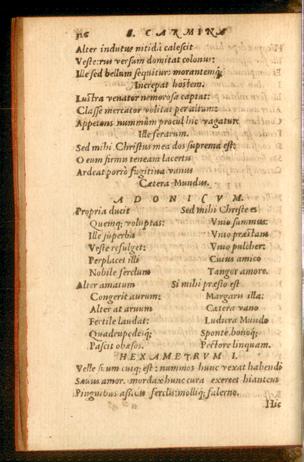 116 S. CARMINA
Alter indutus nitidà calescit
Veste: rus versum domitat colonus:
Ille sed bellum sequitur: morantemq́;
Increpat hostem.
Lustra venator nemorosa captat:
Classe mercator volitat per altum:
Appetens nummûm procul hic vagatur
Ille ferarum.
Sed mihi Christus mea dos suprema est:
O eum firmo teneam lacerto
Ardeat porrò fugitiva vanus
Cætera Mundus.
ADONICVM.
Propria ducit
Quemq́; voluptas:
Ille superbâ
Veste refulget:
Perplacet illi
Nobile ferclum
Alter amatum
Congerit aurum:
Alter at arvum
Fertile laudat:
Quadrupedeiq́;
Pascit obæsos.
Sed mihi Christe es
Vnio summus:
Vnio præstans
Vnio pulcher:
Cuius amico
Tangor amore.
Si mihi præsto est
Margaris illa:
Cætera vano
Ludicra Mundo
Sponte bonoq́;
Pectore linquam.
HEXAMETRVM I.
Velle suum cuiq; est: nummos hunc vexat habendi
Sævus amor. mordax hunc cura exercet hiantem
Pinguibus assuetum ferclis: molliq́; falerno.
Hic